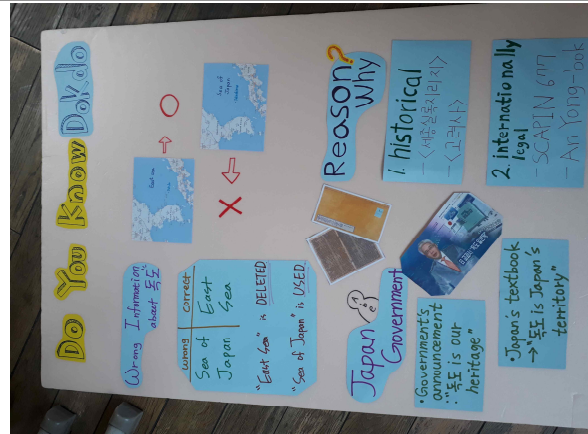 Do You Know Dokdo
Wrong Information
about 독도
wrong
correct
Sea of
Japan
East
Sea
"East Sea" is DELETED
"Sea of Japan" is USED
East Sea
Sea of
Japan
Reason?
Why
1. historical
- <세종실록지리지>
- <고려사>
2. internationally
legal
- SCAPIN 677
- An Yong-bok
Japan
Government
• Government's
announcement
: "독도 is our
heritage"
• Japan's textbook
→ "독도 is Japan's
territory"